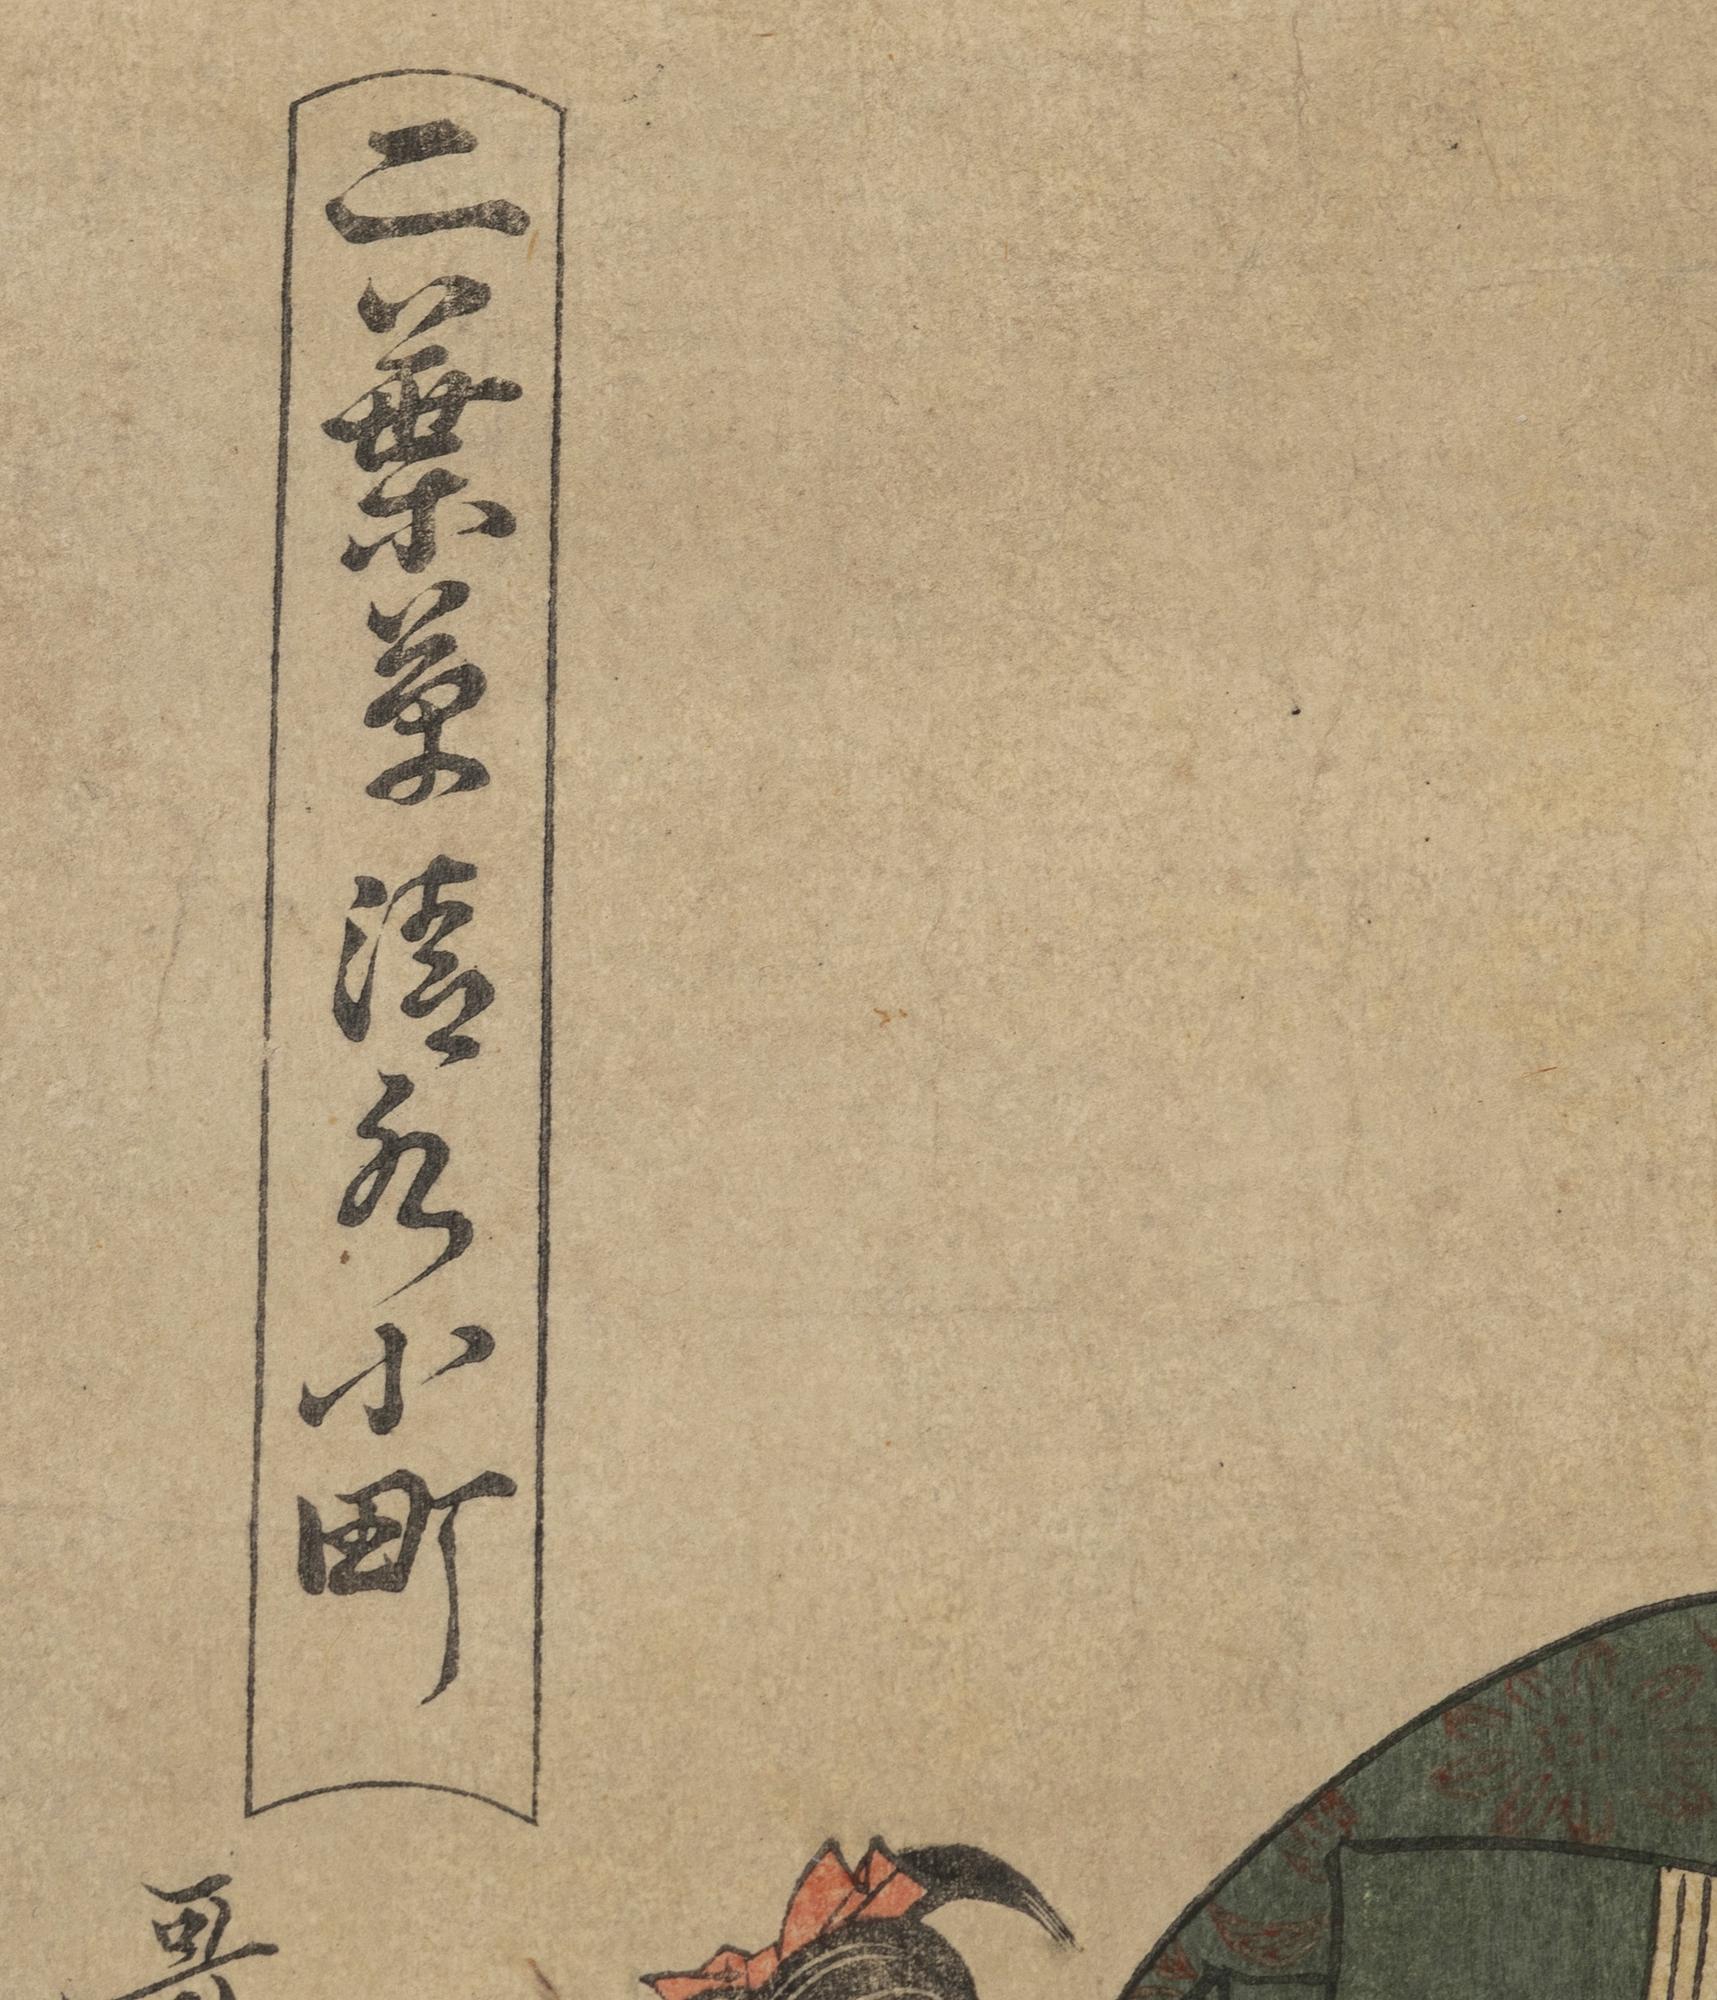 二葉草清水小町
哥